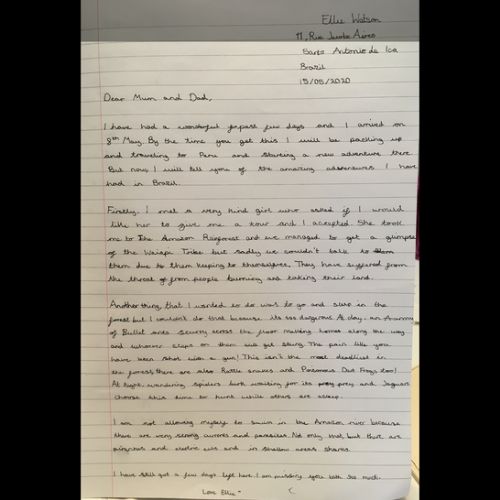 Ellie Watson
11, Rua Jacob Aires
Santo Antonio do Ica
Brazil
15/05/2020
Dear Mum and Dad,
I have had a wonderful past few days and I arrived on
8th May. By the time you get this I will be packing up
and traveling to Peru and starting a new adventure there.
But now I will tell you of the amazing adventures I have
had in Brazil.
Firstly, I met a very kind girl who asked if I would
like her to give me a tour and I accepted. She took
me to the Amazon Rainforest and we managed to get a glimpse
of the Waiapi Tribe but sadly we couldn't talk to
them due to them keeping to themselves. They have suffered from
the threat of from people burning and taking their land.
Another thing that I wanted to do was to go and sleep in the
forest but I couldn't do that because its sss dangerous. At day, an army
of Bullet ants scurry across the floor making homes along the way
and whoever steps on them will get stung. The pain like you
have been shot with a gun! This isn't the most deadliest in
the forest, there are also Rattle snakes and Poisonous Dart Frogs too!
At night, wandering spiders lurk waiting for its prey and Jaguars
choose this time to hunt while others are asleep.
I am not allowing myself to swim in the Amazon river because
there are very strong currents and parasites. Not only that, but there are
piranhas and electric eels and in shallow areas sharks.
I have still got a few days left here. I am missing you both so much.
Love Ellie